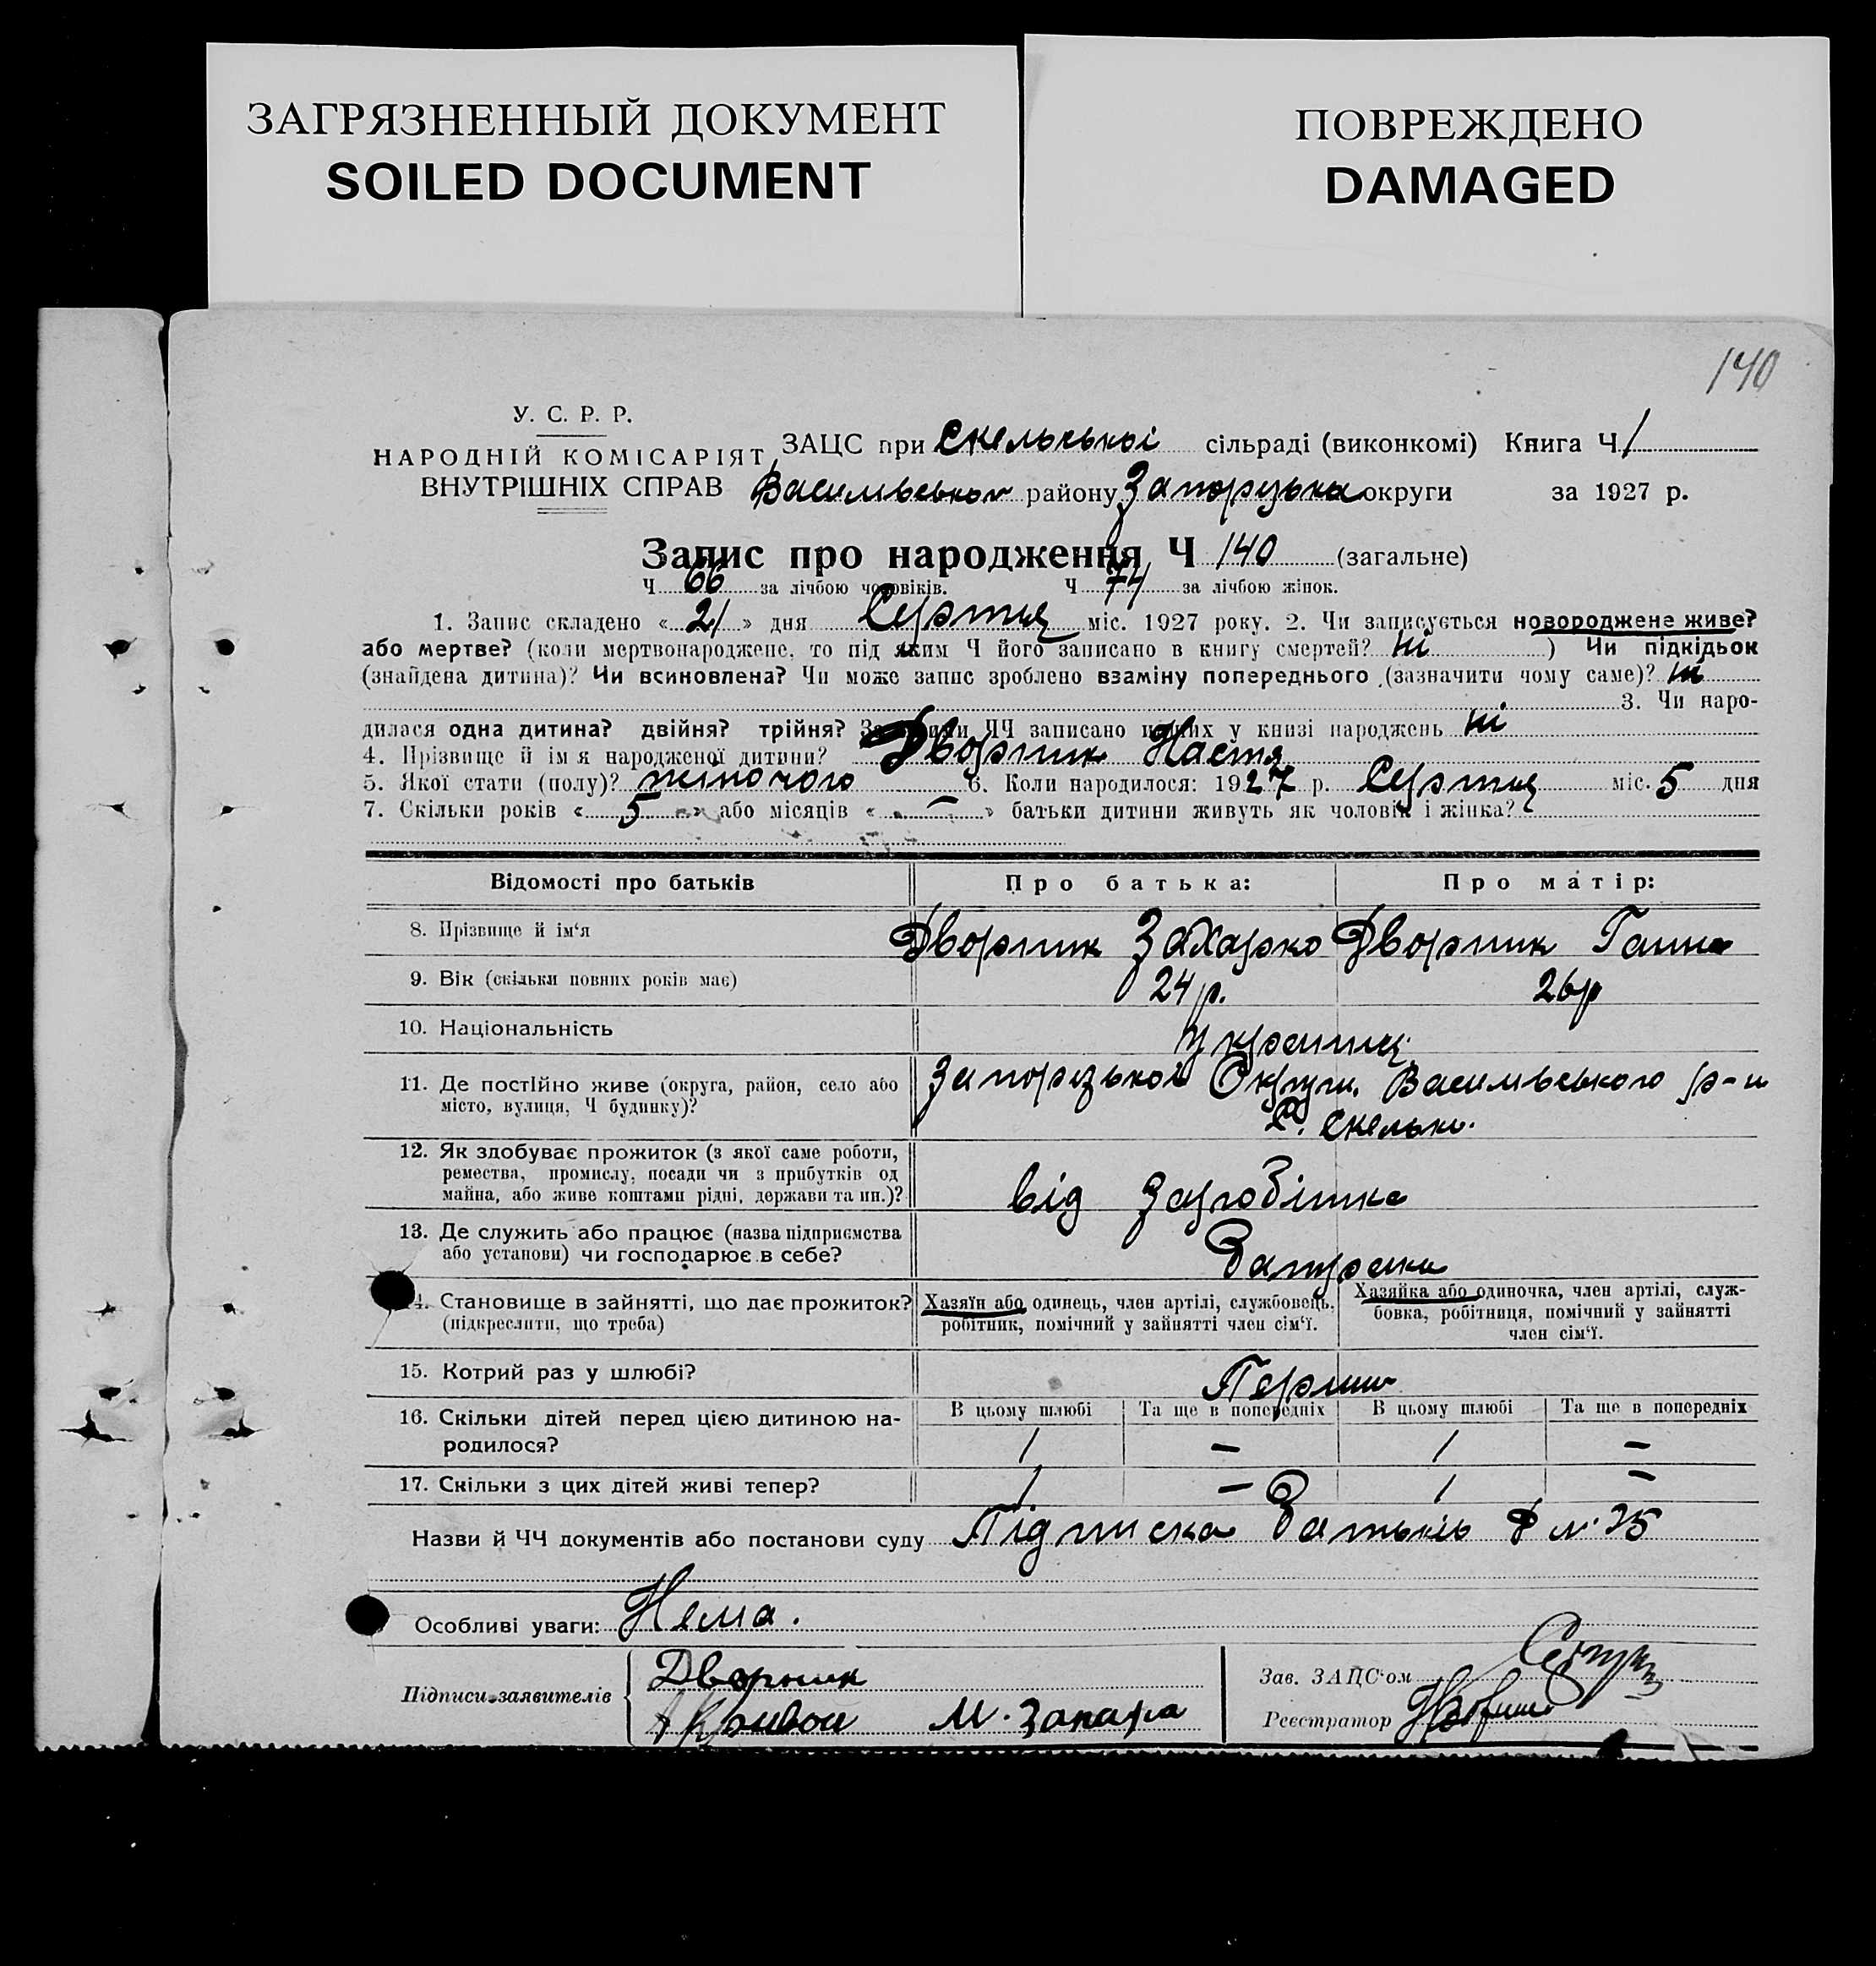 ЗАГРЯЗНЕННЫЙ ДОКУМЕНТ
SOILED DOCUMENT
ПОВРЕЖДЕНО
DAMAGED
140
У. С. Р. Р.
НАРОДНІЙ КОМІСАРІЯТ
ВНУТРІШНІХ СПРАВ
ЗАЦС при Скельської сільраді (виконкомі) Книга Ч 1
Васильевськог району Запорузька округи за 1927 р.
Запис про народження Ч 140 (загальне)
Ч 66 за лічбою чоловіків. Ч 74 за лічбою жінок.
1. Запис складено « 21 » дня Серпня міс. 1927 року. 2. Чи записується новороджене живе?
або мертве? (коли мертвонароджене, то під яким Ч його записано в книгу смертей? ні ) Чи підкідьок
(знайдена дитина)? Чи всиновлена? Чи може запис зроблено взаміну попереднього (зазначити чому саме)? ні
3. Чи наро-
дилася одна дитина? двійня? трійня? За якими ЧЧ записано інших у книзі народжень ні
4. Прізвище й імя народженої дитини? Дворник Настя
5. Якої стати (полу)? жіночого 6. Коли народилося: 1927 р. Серпня міс. 5 дня
7. Скільки років « 5 » або місяців « — » батьки дитини живуть як чоловік і жінка?
Відомості про батьків Про батька: Про матір:
8. Прізвище й ім‘я Дворник Захарко Дворник Ганна
9. Вік (скільки повних років має) 24 р. 26 р
10. Національність українці
11. Де постійно живе (округа, район, село або
місто, вулиця, Ч будинку)?
Запорузької Округи. Васильевського р-н
С. Скельки.
12. Як здобуває прожиток (з якої саме роботи,
ремества, промислу, посади чи з прибутків од
майна, або живе коштами рідні, держави та ин.)?
від заробітка
13. Де служить або працює (назва підприємства
або установи) чи господарює в себе?
14. Становище в зайнятті, що дає прожиток?
(підкреслити, що треба)
Хазяїн або одинець, член артілі, службовець,
робітник, помічний у зайнятті член сім‘ї.
Хазяйка або одиночка, член артілі, служ-
бовка, робітниця, помічний у зайнятті
член сім‘ї.
15. Котрий раз у шлюбі? Перший
16. Скільки дітей перед цією дитиною на-
родилося?
В цьому шлюбі Та ще в попередніх В цьому шлюбі Та ще в попередніх
1 — 1 —
17. Скільки з цих дітей живі тепер? 1 — 1 —
Назви й ЧЧ документів або постанови суду Підписка Батьків № 25
Особливі уваги: Нема.
Підписи заявителів
Дворник
М. Запара
Зав. ЗАЦС‘ом
Реєстратор